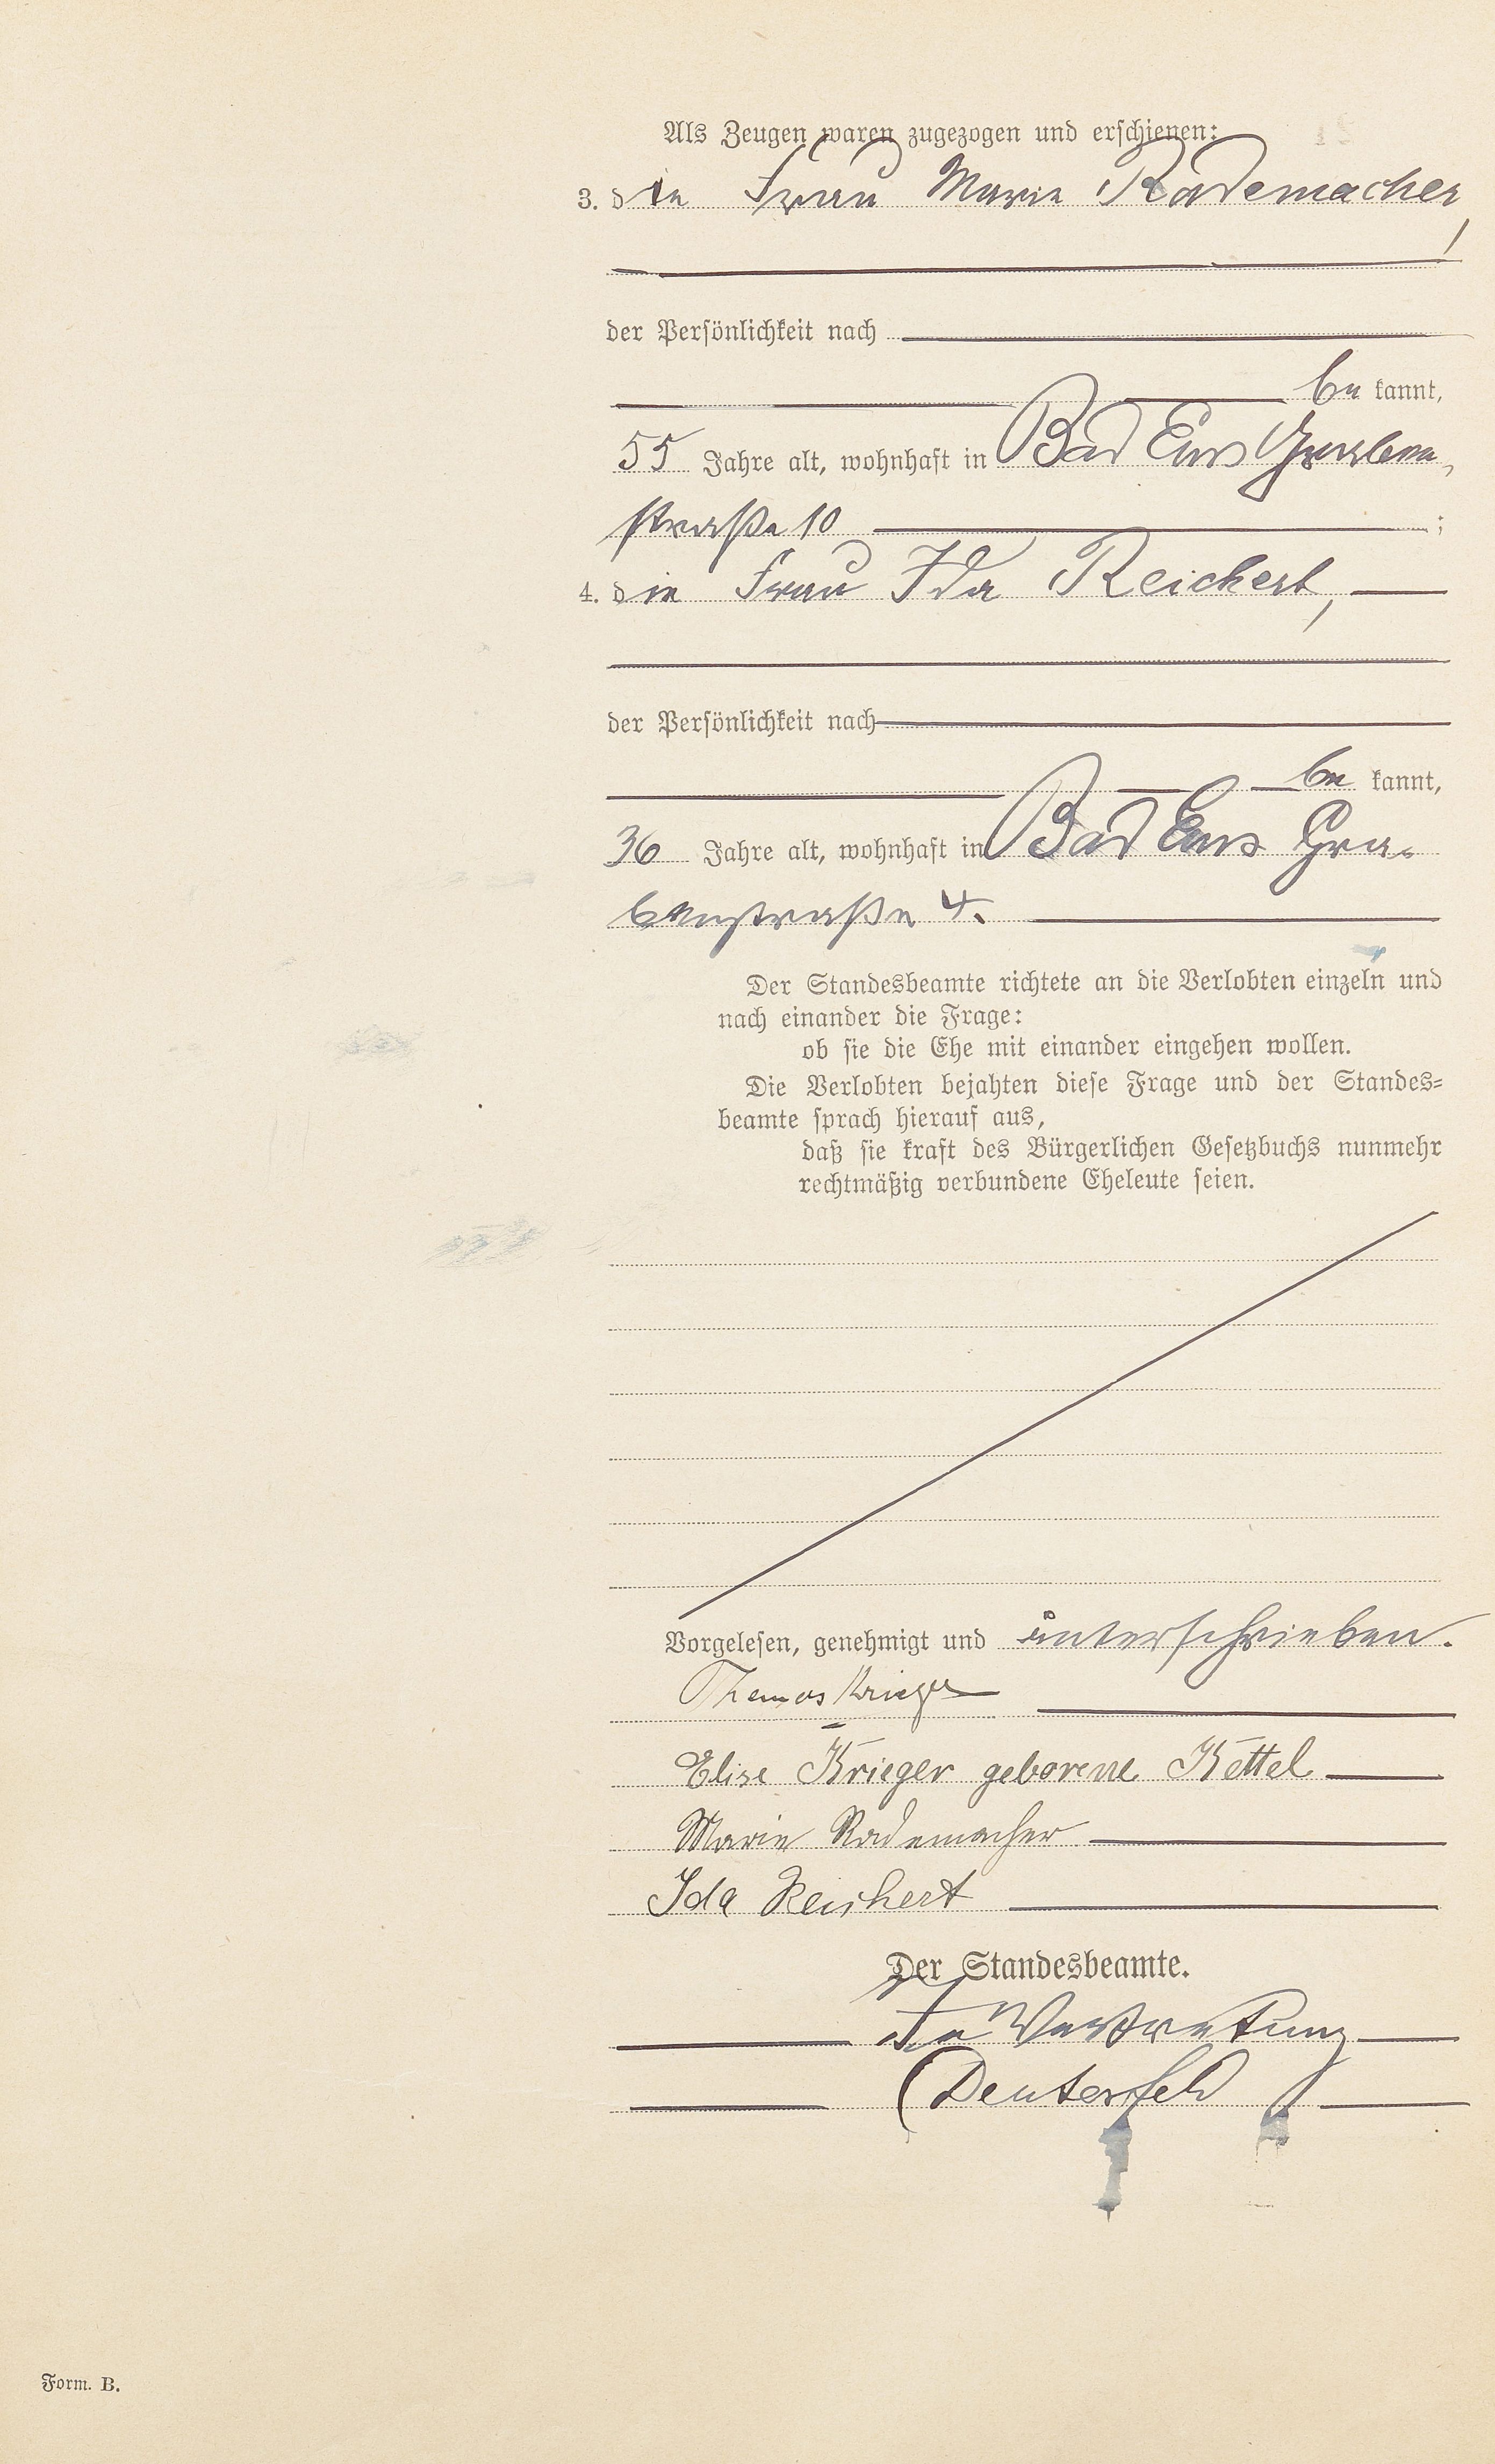 Als Zeugen waren zugezogen und erschienen:
3. die Frau Marie Rademacher,
der Persönlichkeit nach
be kannt,
55 Jahre alt, wohnhaft in Bad Ems Graben-
straße 10 ;
4. die Frau Ida Reichert,
der Persönlichkeit nach
be kannt,
36 Jahre alt, wohnhaft in Bad Ems Gra-
benstraße 4.
Der Standesbeamte richtete an die Verlobten einzeln und
nach einander die Frage:
ob sie die Ehe mit einander eingehen wollen.
Die Verlobten bejahten diese Frage und der Standes-
beamte sprach hierauf aus,
daß sie kraft des Bürgerlichen Gesetzbuchs nunmehr
rechtmäßig verbundene Eheleute seien.
Vorgelesen, genehmigt und unterschrieben.
Thomas Krieger
Elise Krieger geborene Kettel
Marie Rademacher
Ida Reichert
Der Standesbeamte.
In Vertretung
Deuterfeld
Form. B.